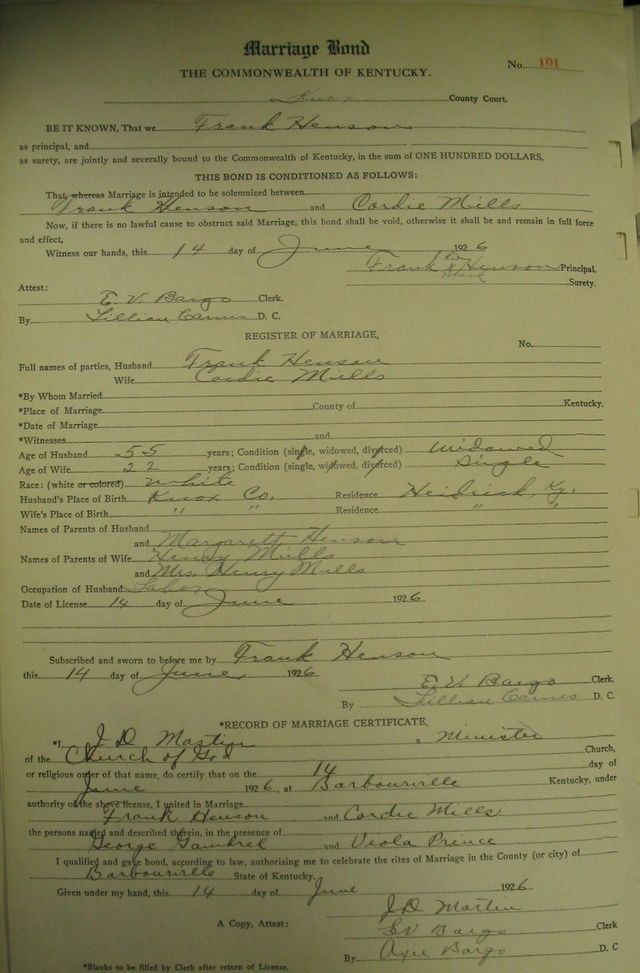 Marriage Bond
THE COMMONWEALTH OF KENTUCKY.
No. 101
Knox County Court.
BE IT KNOWN, That we Frank Henson
as principal, and
as surety, are jointly and severally bound to the Commonwealth of Kentucky, in the sum of ONE HUNDRED DOLLARS.
THIS BOND IS CONDITIONED AS FOLLOWS:
That, whereas Marriage is intended to be solemnized between
Frank Henson and Cordie Mills
Now, if there is no lawful cause to obstruct said Marriage, this bond shall be void, otherwise it shall be and remain in full force
and effect,
Witness our hands, this 14 day of June 1926
Frank his X mark Henson Principal,
Surety.
Attest:
E. V. Bargo Clerk.
By Lillian Carnes D. C.
REGISTER OF MARRIAGE,
No.
Full names of parties, Husband Frank Henson
Wife Cordie Mills
*By Whom Married
*Place of Marriage County of Kentucky.
*Date of Marriage
*Witnesses and
Age of Husband 55 years; Condition (single, widowed, divorced) Widowed
Age of Wife 22 years; Condition (single, widowed, divorced) Single
Race: (white or colored) White
Husband's Place of Birth Knox Co. Residence Heidrick, Ky.
Wife's Place of Birth " " Residence " "
Names of Parents of Husband
and Margarett Henson
Names of Parents of Wife Henry Mills
and Mrs. Henry Mills
Occupation of Husband Labor
Date of License 14 day of June 1926
Subscribed and sworn to before me by Frank Henson
this 14 day of June 1926
E. V. Bargo Clerk.
By Lillian Carnes D. C.
*RECORD OF MARRIAGE CERTIFICATE,
*I, J D Martin a Minister
of the Church of God Church,
or religious order of that name, do certify that on the 14 day of
June 1926, at Barbourville Kentucky, under
authority of the above license, I united in Marriage
Frank Henson and Cordie Mills
the persons named and described therein, in the presence of
George Gambrel and Viola Prince
I qualified and gave bond, according to law, authorizing me to celebrate the rites of Marriage in the County (or city) of
Barbourville State of Kentucky.
Given under my hand, this 14 day of June 1926
J D Martin
A Copy, Attest: E V Bargo Clerk
By Bargo D. C
*Blanks to be filled by Clerk after return of License.